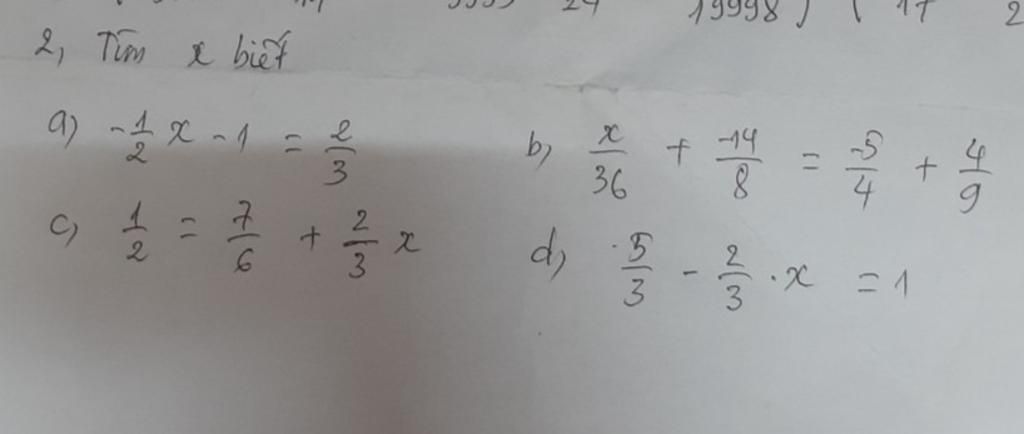 9999 24 19998) ( 17 2
2, Tìm x biết
a) -1/2 x - 1 = 2/3 b, x/36 + -14/8 = -5/4 + 4/9
c, 1/2 = 7/6 + 2/3 x d, 5/3 - 2/3 . x = 1